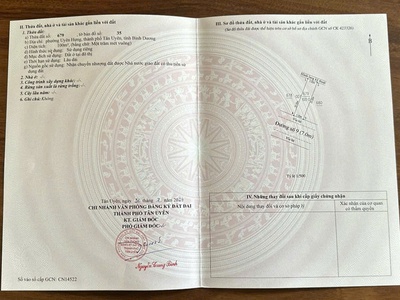 II. Thửa đất, nhà ở và tài sản khác gắn liền với đất
1. Thửa đất:
a) Thửa đất số: 679 tờ bản đồ số: 35
b) Địa chỉ: phường Uyên Hưng, thành phố Tân Uyên, tỉnh Bình Dương
c) Diện tích: 100m² (bằng chữ: Một trăm mét vuông)
d) Hình thức sử dụng: Sử dụng riêng
đ) Mục đích sử dụng: Đất ở tại đô thị
e) Thời hạn sử dụng: Lâu dài
g) Nguồn gốc sử dụng: Nhận chuyển nhượng đất được Nhà nước giao đất có thu tiền sử dụng đất
2. Nhà ở:
3. Công trình xây dựng khác:
4. Rừng sản xuất là rừng trồng:
5. Cây lâu năm:
6. Ghi chú: Không
Tân Uyên, ngày
CHI NHÁNH VĂN PHÒNG ĐĂNG KÝ ĐẤT ĐAI
THÀNH PHỐ TÂN UYÊN
KT. GIÁM ĐỐC
PHÓ GIÁM ĐỐC
Số vào sổ cấp GCN: CN14522
III. Sơ đồ thửa đất, nhà ở và tài sản khác gắn liền với đất
B
Đường số 9 (7.0m)
IV. Những thay đổi sau khi cấp giấy chứng nhận
Nội dung thay đổi và cơ sở pháp lý
Xác nhận của cơ quan
có thẩm quyền